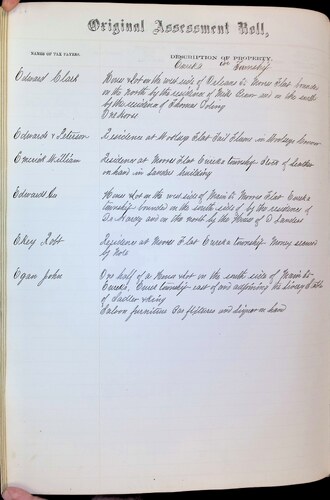 Original Assessment Roll,
NAMES OF TAX PAYERS.
DESCRIPTION OF PROPERTY.
Eureka Township
Edward Clark
House & Lot on the west side of Orleans St Moores Flat bounded
on the north by the residence of Mike Bean and on the south
by the residence of Thomas
One horse
Edwards & Peterson
Residence at Woolsey Flat Tail Flume in Woolsey Ravine
Emerick William
Residence at Moores Flat Eureka township Stock of leather
on hand in Sanders building
Edwards
House & Lot on the west side of Main St Moores Flat Eureka
township bounded on the south side by the residence of
Dr and on the north by the House of D Sanders
Ekey Robt
Residence at Moores Flat Eureka township Money secured
by Note
Egan John
One half of a House & Lot on the south side of Main St
Eureka, Eureka township east of and adjoining the Livery Stable
of Sadler & King
Saloon furniture Bar fixtures and liquor on hand